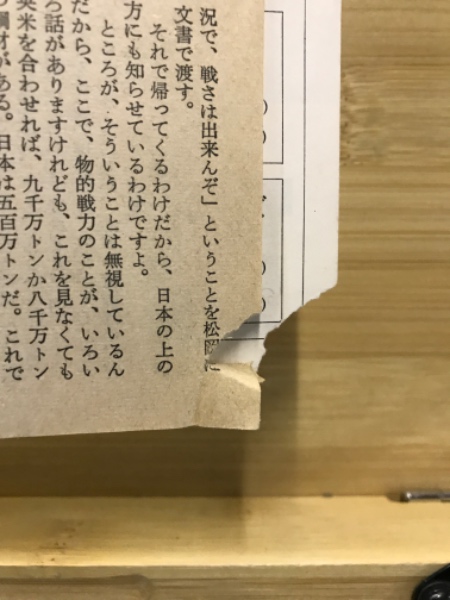 況で、戦さは出来んぞ」ということを松岡に
文書で渡す。
それで帰ってくるわけだから、日本の上の
方にも知らせているわけですよ。
ところが、そういうことは無視しているん
だから、ここで、物的戦力のことが、いろい
ろ話がありますけれども、これを見なくても
英米を合わせれば、九千万トンか八千万トン
鋼材がある。日本は五百万トンだ。これで